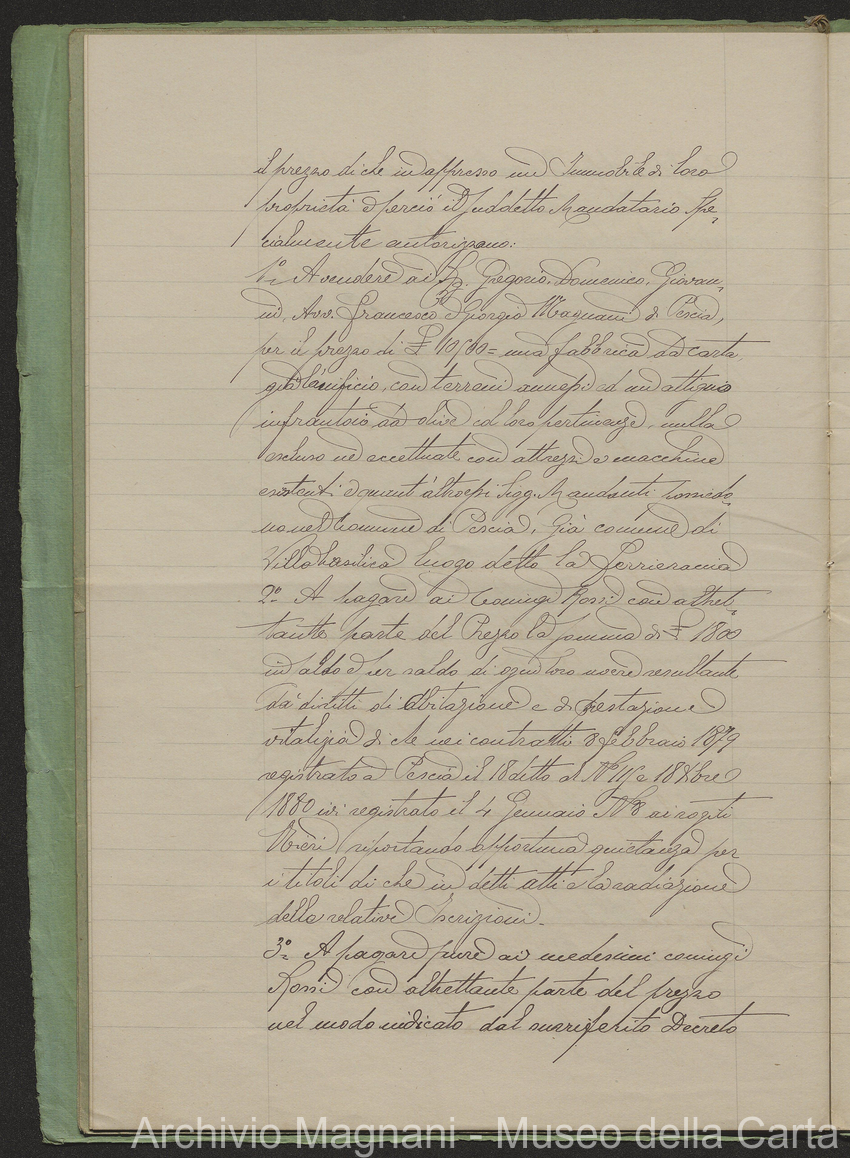 il prezzo di che in appresso un Immobile di loro
proprietà e perciò il suddetto Mandatario Spe=
cialmente autorizzano:
1º A vendere ai Sigg. Gregorio, Domenico, Giovan=
ni, Avv. Francesco e Giorgio Magnani di Pescia,
per il prezzo di £ 10500= una fabbrica da carta,
già lanificio, con terreni annessi ed un attiguo
infrantoio da olive col loro pertinenze, nulla
escluso nè eccettuato con attrezzi e macchine
esistenti e quant'altro essi Sigg. Mandanti possiedo=
no nel Comune di Pescia, già comune di
Villa basilica luogo detto la Ferrieraccia
2º A pagare ai Coniugi Rossi con altret=
tante parte del Prezzo la somma di £ 1800
in saldo e per saldo di ogni loro avere resultante
da' diritti di abitazione e di prestazione
vitalizia di che nei contratti 8 Febbraio 1879
registrato a Pescia il 18 detto al Nº e 18 Xbre
1880 ivi registrato il 4 Gennaio Nº 8 ai rogiti
Nieri riportando opportuna quietanza per
i titoli di che in detti atti e la radiazione
delle relative Iscrizioni.
3º A pagare pure ai medesimi coniugi
Rossi con altrettante parte del prezzo
nel modo indicato dal surriferito Decreto
Archivio Magnani - Museo della Carta